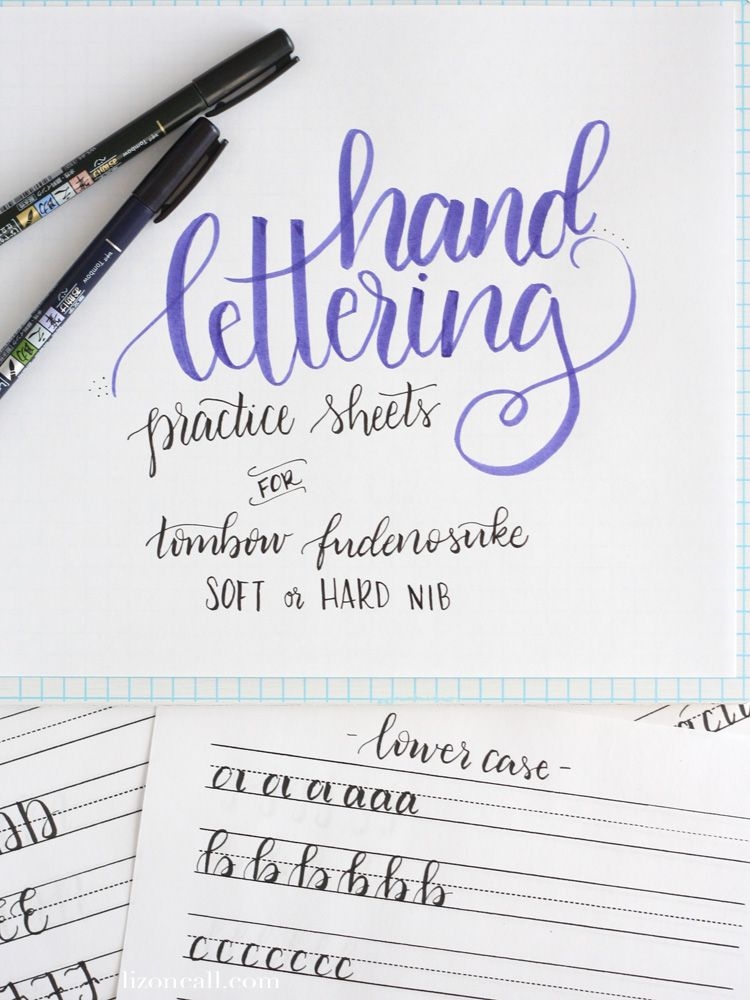 hand
lettering
practice sheets
FOR
tombow fudenosuke
SOFT or HARD NIB
Tombow
Tombow
- lower case -
a a a a a a
b b b b b b
c c c c c c c
lizoncall.com